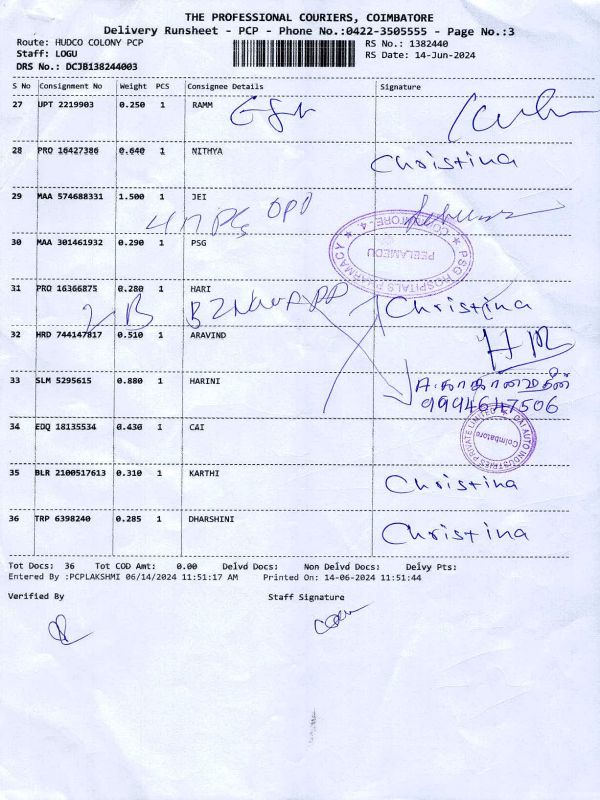 THE PROFESSIONAL COURIERS, COIMBATORE
Delivery Runsheet - PCP - Phone No.:0422-3505555 - Page No.:3
Route: HUDCO COLONY PCP
Staff: LOGU
DRS No.: DCJB138244003
RS No.: 1382440
RS Date: 14-Jun-2024
S No Consignment No Weight PCS Consignee Details Signature
27 UPT 2219903 0.250 1 RAMM
28 PRO 16427386 0.640 1 NITHYA Christina
29 MAA 574688331 1.500 1 JEI
OPP
30 MAA 301461932 0.290 1 PSG PSG HOSPITALS PHARMACY PEELAMEDU COIMBATORE - 4.
31 PRO 16366875 0.280 1 HARI Christina
32 HRD 744147817 0.510 1 ARAVIND
33 SLM 5295615 0.880 1 HARINI
9994647506
34 EDQ 18135534 0.430 1 CAI CAI AUTO INDUSTRIES PRIVATE LIMITED Coimbatore
35 BLR 2100517613 0.310 1 KARTHI Christina
36 TRP 6398240 0.285 1 DHARSHINI Christina
Tot Docs: 36 Tot COD Amt: 0.00 Delvd Docs: Non Delvd Docs: Delvy Pts:
Entered By :PCPLAKSHMI 06/14/2024 11:51:17 AM Printed On: 14-06-2024 11:51:44
Verified By Staff Signature